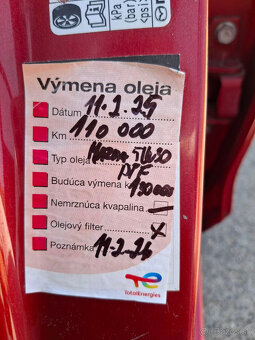 kPa
(bar)
<psi>
Výmena oleja
Dátum 11.2.25
Km 110 000
Typ oleja 5W30
DPF
Budúca výmena k 130 000
Nemrznúca kvapalina
Olejový filter x
Poznámka 11.2.26
TotalEnergies